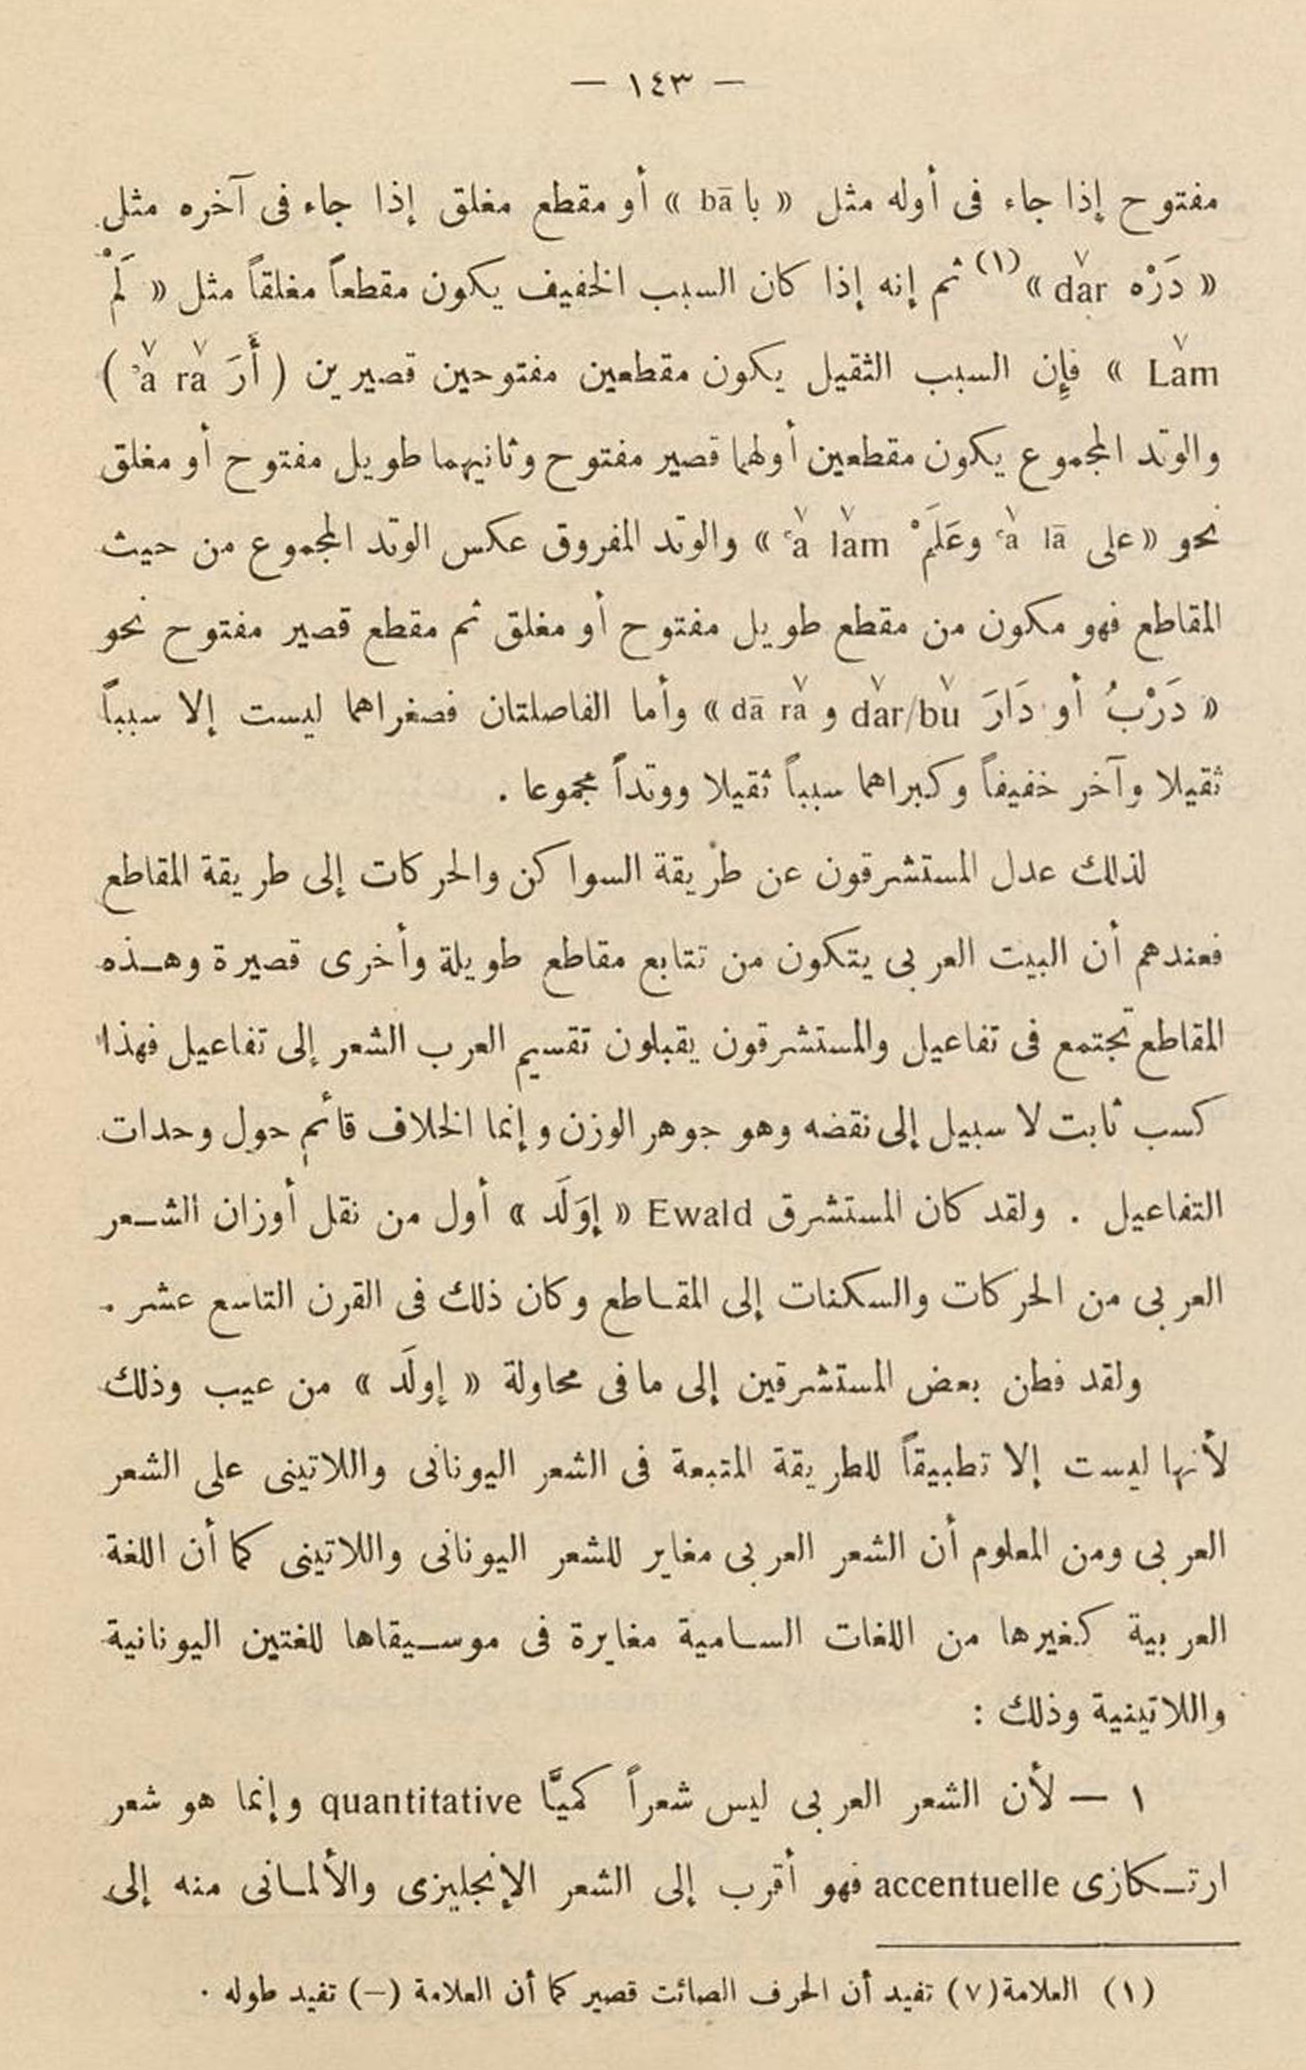 — ١٤٣ —
مفتوح إذا جاء فى أوله مثل « با bā » أو مقطع مغلق إذا جاء فى آخره مثل
« دَرْه dǎr »(١) ثم إنه إذا كان السبب الخفيف يكون مقطعاً مغلقاً مثل « لَمْ
Lǎm » فإِن السبب الثقيل يكون مقطعين مفتوحين قصيرين ( أَرَ ʾǎ rǎ )
والوتد المجموع يكون مقطعين أولهما قصير مفتوح وثانيهما طويل مفتوح أو مغلق
نحو « على ʿǎ lā وعَلَمْ ʿǎ lǎm » والوتد المفروق عكس الوتد المجموع من حيث
المقاطع فهو مكون من مقطع طويل مفتوح أو مغلق ثم مقطع قصير مفتوح نحو
« دَرْبُ أو دَارَ dǎr/bǔ و dā rǎ » وأما الفاصلتان فصغراهما ليست إلا سبباً
ثقيلا وآخر خفيفاً وكبراهما سبباً ثقيلا ووتداً مجموعا .
لذلك عدل المستشرقون عن طريقة السواكن والحركات إلى طريقة المقاطع
فعندهم أن البيت العربى يتكون من تتابع مقاطع طويلة وأخرى قصيرة وهـذه
المقاطع تجتمع فى تفاعيل والمستشرقون يقبلون تقسيم العرب الشعر إلى تفاعيل فهذا
كسب ثابت لا سبيل إلى نقضه وهو جوهر الوزن وإنما الخلاف قائم حول وحدات
التفاعيل . ولقد كان المستشرق Ewald « إوَلَد » أول من نقل أوزان الشـعر
العربى من الحركات والسكنات إلى المقـاطع وكان ذلك فى القرن التاسع عشر .
ولقد فطن بعض المستشرقين إلى ما فى محاولة « إولَد » من عيب وذلك
لأنها ليست إلا تطبيقاً للطريقة المتبعة فى الشعر اليونانى واللاتينى على الشعر
العربى ومن المعلوم أن الشعر العربى مغاير للشعر اليونانى واللاتينى كما أن اللغة
العربية كغيرها من اللغات السـامية مغايرة فى موسـيقاها للغتين اليونانية
واللاتينية وذلك :
١ — لأن الشعر العربى ليس شعراً كميًّا quantitative وإنما هو شعر
ارتـكازى accentuelle فهو أقرب إلى الشعر الإنجليزى والألمـانى منه إلى
(١) العلامة (٧) تفيد أن الحرف الصائت قصير كما أن العلامة (–) تفيد طوله .